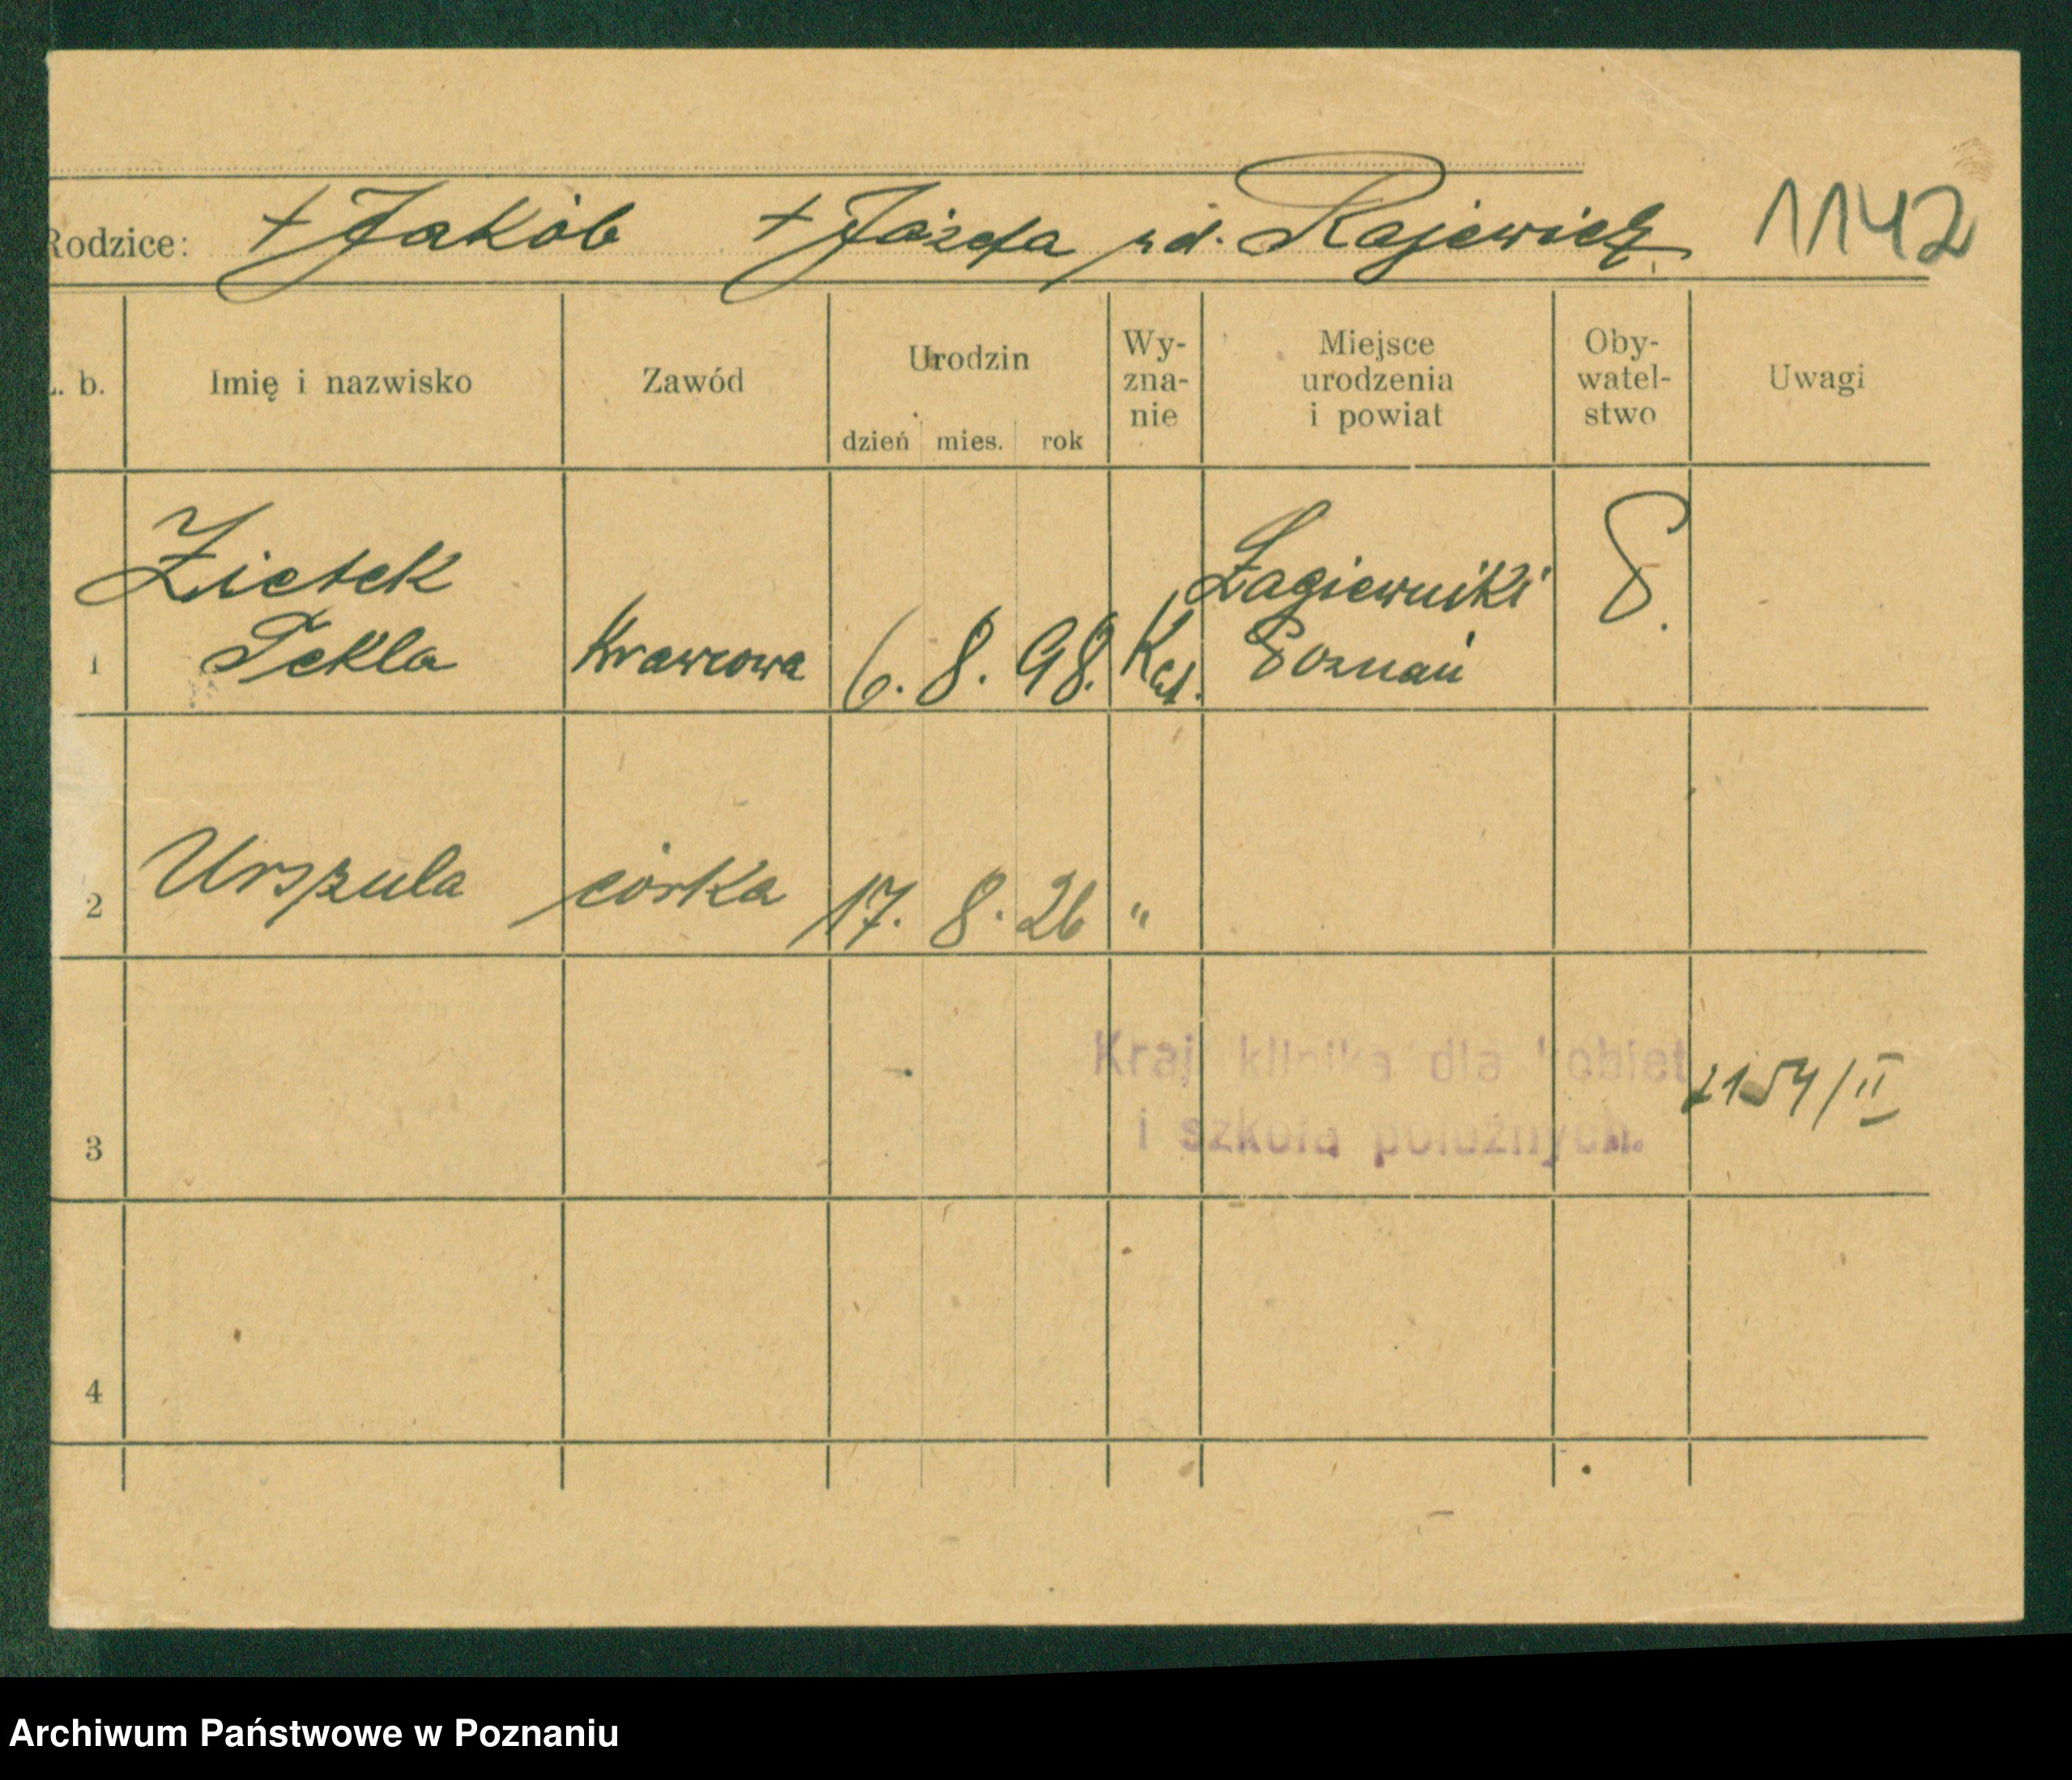 Rodzice: + Jakób + Józefa rd. Rajewicz 1142
L. b. Imię i nazwisko Zawód Urodzin dzień mies. rok Wy-zna-nie Miejsce urodzenia i powiat Oby-watel-stwo Uwagi
Zietek Łagiewniki P.
1 Tekla Krawcowa 6. 8. 98. Kat. Poznań
2 Urszula córka 17. 8. 26 "
Kraj klinika dla kobiet
1154/II
i szkoła położnych.
3
4
Archiwum Państwowe w Poznaniu